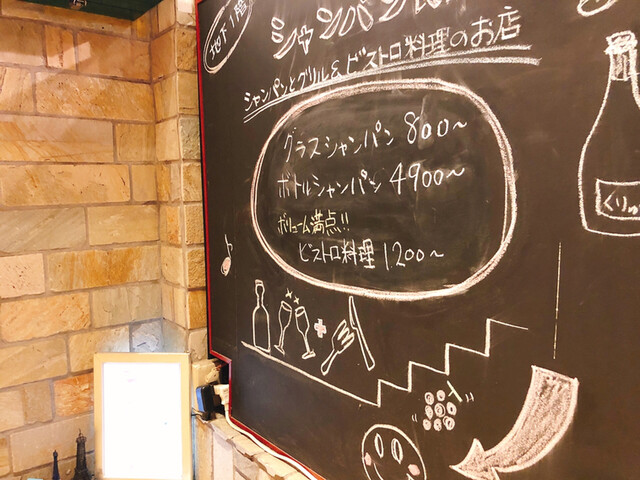 地下1階
シャンパン
シャンパンとグリル&ビストロ料理のお店
グラスシャンパン 800~
ボトルシャンパン 4900~
ボリューム満点!!
ビストロ料理 1200~
くりゅ